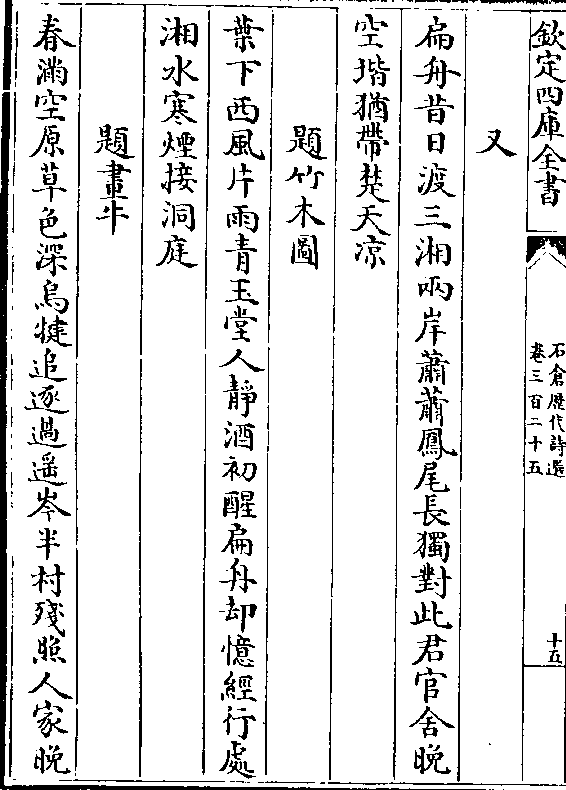 欽定四庫全書
石倉歷代詩選
卷三百二十五
十五
又
扁舟昔日渡三湘兩岸蕭蕭鳳尾長獨對此君官舍晚
空堦猶帶楚天凉
題竹木圖
葉下西風片雨青玉堂人靜酒初醒扁舟却憶經行處
湘水寒煙接洞庭
題畫牛
春滿空原草色深烏犍追逐過遥岑半村殘照人家晚